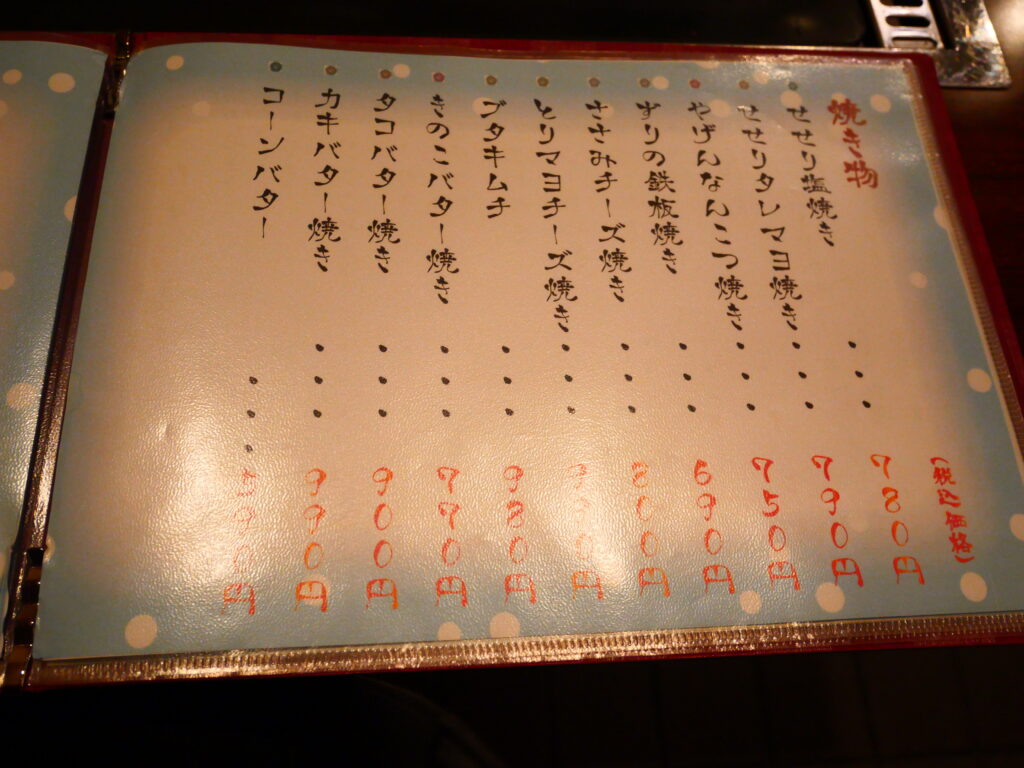 焼き物
(税込価格)
せせり塩焼き・・・780円
せせりタレマヨ焼き・・・790円
やげんなんこつ焼き・・・750円
ずりの鉄板焼き・・・690円
ささみチーズ焼き・・・800円
とりマヨチーズ焼き・・・円
ブタキムチ・・・980円
きのこバター焼き・・・円
タコバター焼き・・・900円
カキバター焼き・・・990円
コーンバター・・・590円